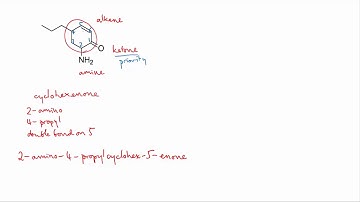 alkene
O
ketone
priority
NH2
amine
cyclohexenone
2-amino
4-propyl
double bond on 5
2-amino-4-propylcyclohex-5-enone